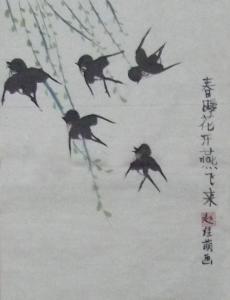 春暖花开燕飞来
赵桂萌画